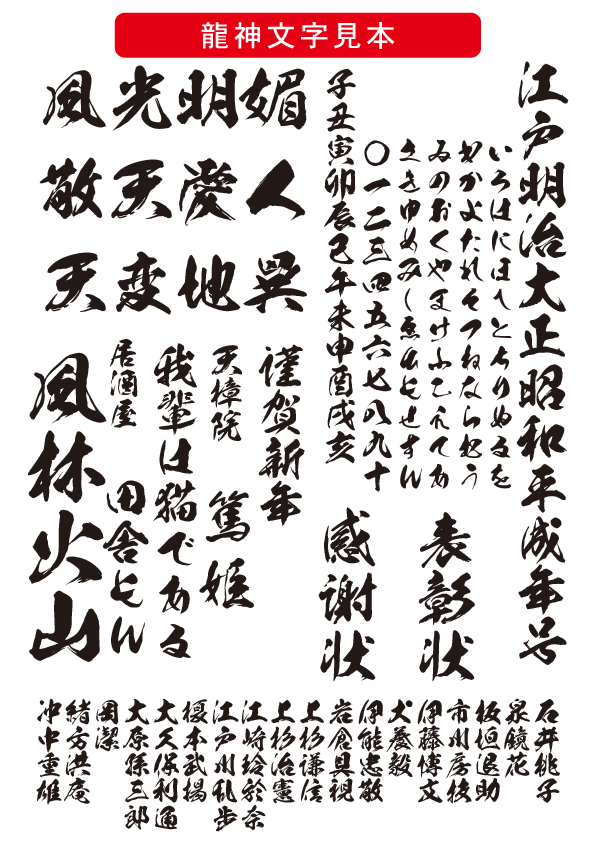 龍神文字見本
江戸明治大正昭和平成年号
いろはにほへとちりぬるを
わかよたれそつねならむう
ゐのおくやまけふこえてあ
さきゆめみしゑひもせすん
〇一二三四五六七八九十
子丑寅卯辰巳午未申酉戌亥
表彰状
感謝状
風光明媚
敬天愛人
天変地異
謹賀新年
天樟院 篤姫
我輩は猫である
居酒屋 田舎もん
風林火山
石井桃子
泉鏡花
板垣退助
市川房枝
伊藤博文
犬養毅
伊能忠敬
岩倉具視
上杉謙信
上杉治憲
江崎玲於奈
江戸川乱歩
榎本武揚
大久保利通
大原孫三郎
岡潔
緒方洪庵
沖中重雄